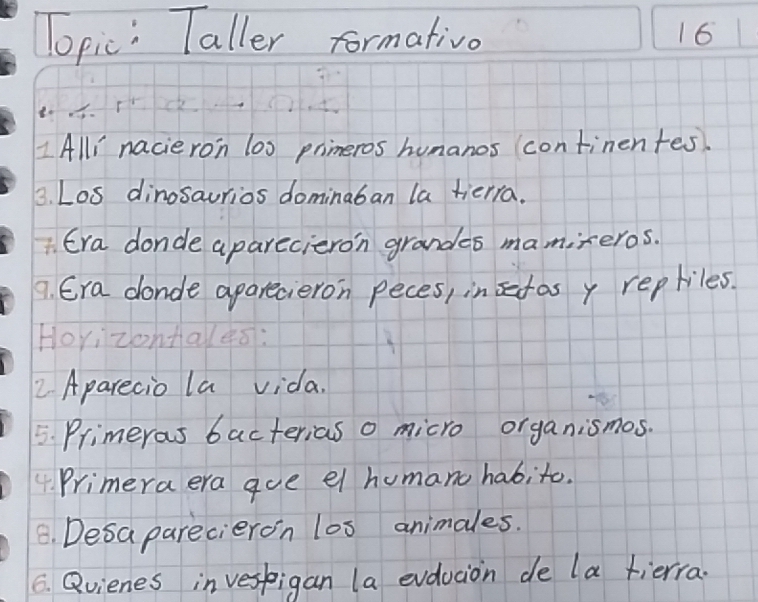 Topic: Taller formativo 16
1 Allí nacierón los primeros humanos (continentes).
3. Los dinosaurios dominaban la tierra.
7. Era donde aparecierón grandes mamiferos.
9. Era donde aparecierón peces, insectos y reptiles.
Horizontales:
2. Aparecio la vida.
5. Primeras bacterias o micro organismos.
4. Primera era que el humano habito.
8. Desaparecierón los animales.
6. Quienes investigan la evolución de la tierra.